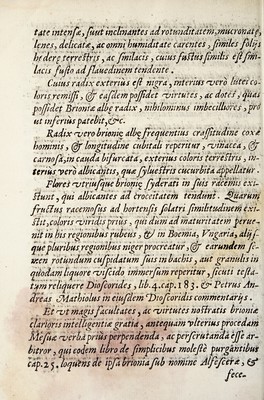 tate intensæ, sunt inclinantes ad rotunditatem, mucronatæ,
lenes, delicatæ, ac omni humiditate carentes, similes folijs
hederę terrestris, ac smilacis, cuius fustus similis est smi-
lacis fusto ad flauedinem tendente.
Cuius radix exterius est nigra, interius verò lutei co-
loris remissi, & easdem possidet virtutes, ac dotes, quas
possidet Brioniæ albę radix, nihilominus imbecillores, pro
ut inferius patebit, &c.
Radix vero brionię albę frequentius crassitudine coxæ
hominis, & longitudine cubitali reperitur, vinacea, &
carnosa, in cauda bifurcata, exterius coloris terrestris, in-
terius verò albicantis, quæ syluestris cucurbita appellatur.
Flores vtriusque brionię syderati in suis racemis exi-
stunt, qui albicantes ad croceitatem tendunt. Quarum
fructus racemosus ad hortensis solatri similitudinem exi-
stit, coloris viridis prius, qui dum ad maturitatem perue-
nit in his regionibus rubeus, & in Boemia, Vngaria, alijs-
que pluribus regionibus niger procreatur, & earundem se-
men rotundum cuspidatum suis in bachis, aut granulis in
quodam liquore viscido immersum reperitur, sicuti testa-
tum reliquere Dioscorides, lib. 4. cap. 183. & Petrus An-
dreas Mathiolus in eiusdem Dioscoridis commentarijs.
Et vt magis facultates, ac virtutes nostratis brioniæ
clarioris intelligentiæ gratia, antequam vlterius procedam
Mesuæ verba prius perpendenda, ac perscrutanda esse ar-
bitror, qui codem libro de simplicibus molestè purgantibus
cap. 25. loquens de ipsa brionia sub nomine Alfescerę, &
fece-